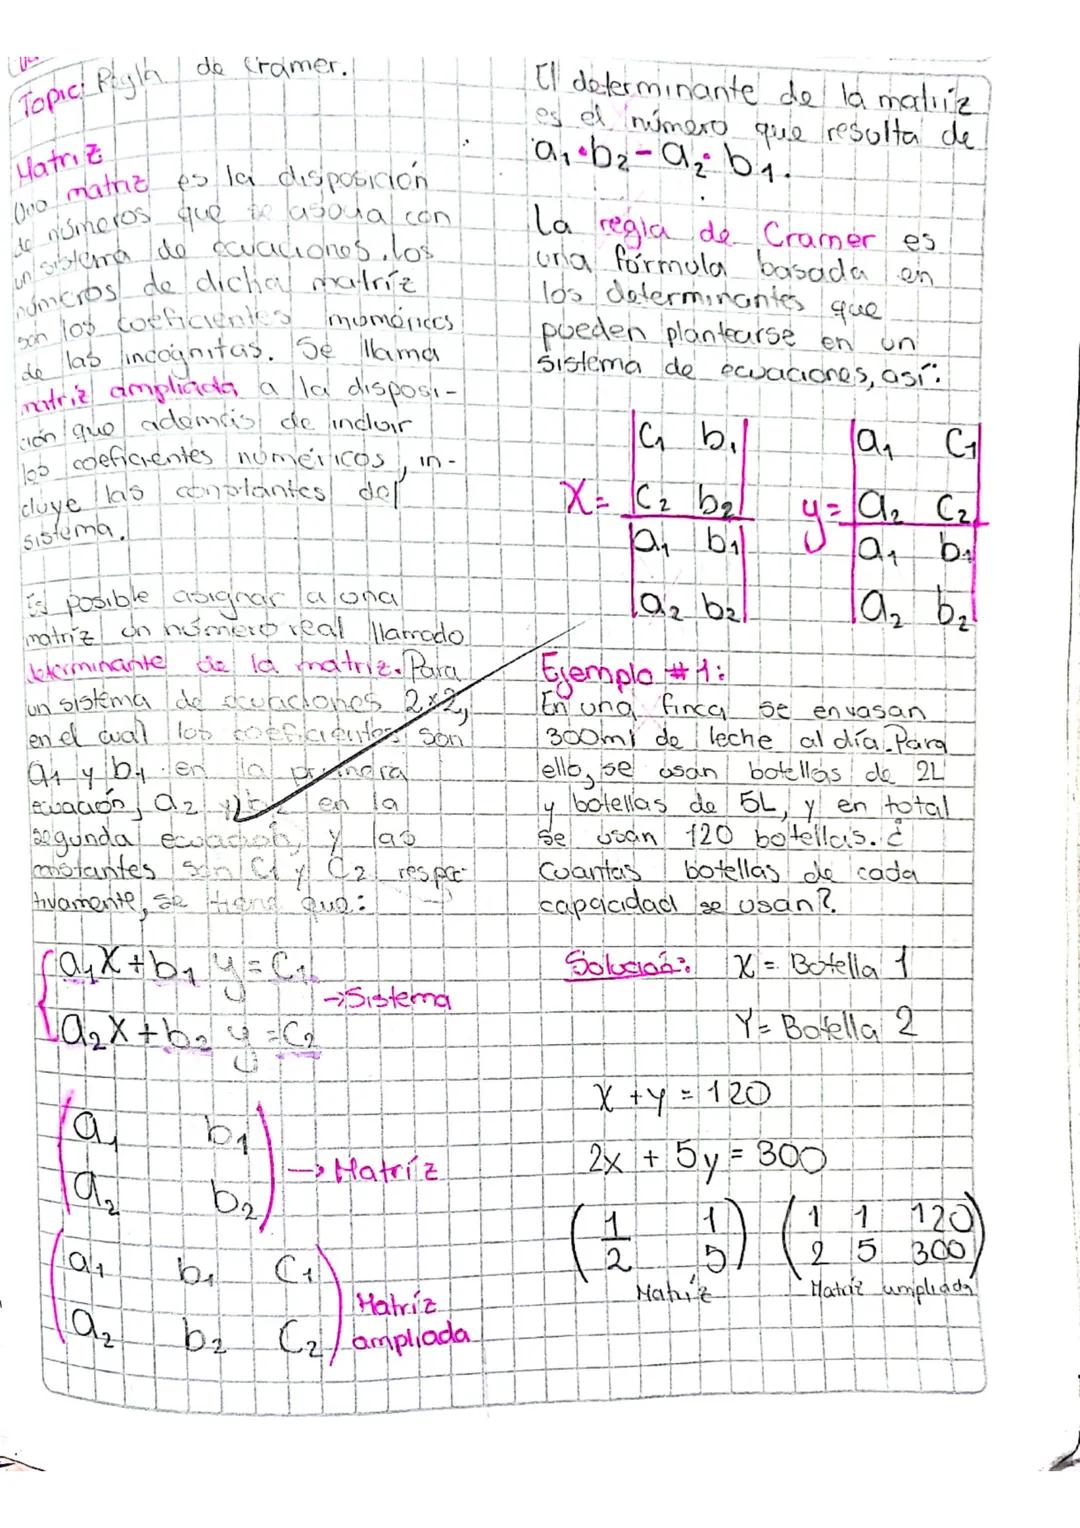 Topic: Regla de Cramer.
Matriz
Una matriz es la disposición
de números que se asocia con
un sistema de ecuaciones. los
números de dicha matríz
son los coeficientes numéricos
de las incógnitas. Se llama
matriz ampliada a la disposi-
ción que además de incluir
los coeficientes numéricos, in-
cluye las constantes del
sistema.
Es posible asignar a una
matríz un número real llamado
determinante de la matriz. Para
un sistema de ecuaciones 2x2,
en el cual los coeficientes son
a1 y b1 en la primera
ecuación, a2 y b2 en la
segunda ecuación, y las
constantes son C1 y C2 respec-
tivamente, se tiene que:
a1X + b1 y = C1
→ Sistema
a2X + b2 y = C2
a1 b1
→ Matríz
a2 b2
a1 b1 C1
Matríz
a2 b2 C2 ampliada
El determinante de la matriíz
es el número que resulta de
a1 • b2 - a2 • b1.
La regla de Cramer es
una fórmula basada en
los determinantes que
pueden plantearse en un
sistema de ecuaciones, así:
C1 b1 a1 C1
X = C2 b2 y = a2 C2
a1 b1 a1 b1
a2 b2 a2 b2
Ejemplo #1:
En una finca se envasan
300ml de leche al día. Para
ello, se usan botellas de 2L
y botellas de 5L, y en total
se usan 120 botellas. ¿
Cuantas botellas de cada
capacidad se usan?.
Solución: X = Botella 1
Y = Botella 2
X + y = 120
2x + 5y = 300
1 1 1 1 120
2 5 2 5 300
Matríz Matríz ampliada